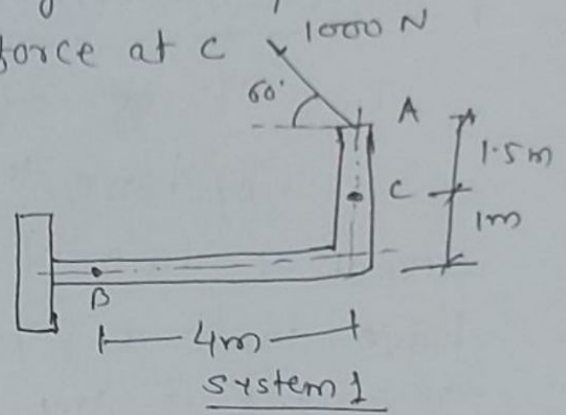 force at C
1000 N
60°
A
1.5m
C
1m
B
4m
System 1